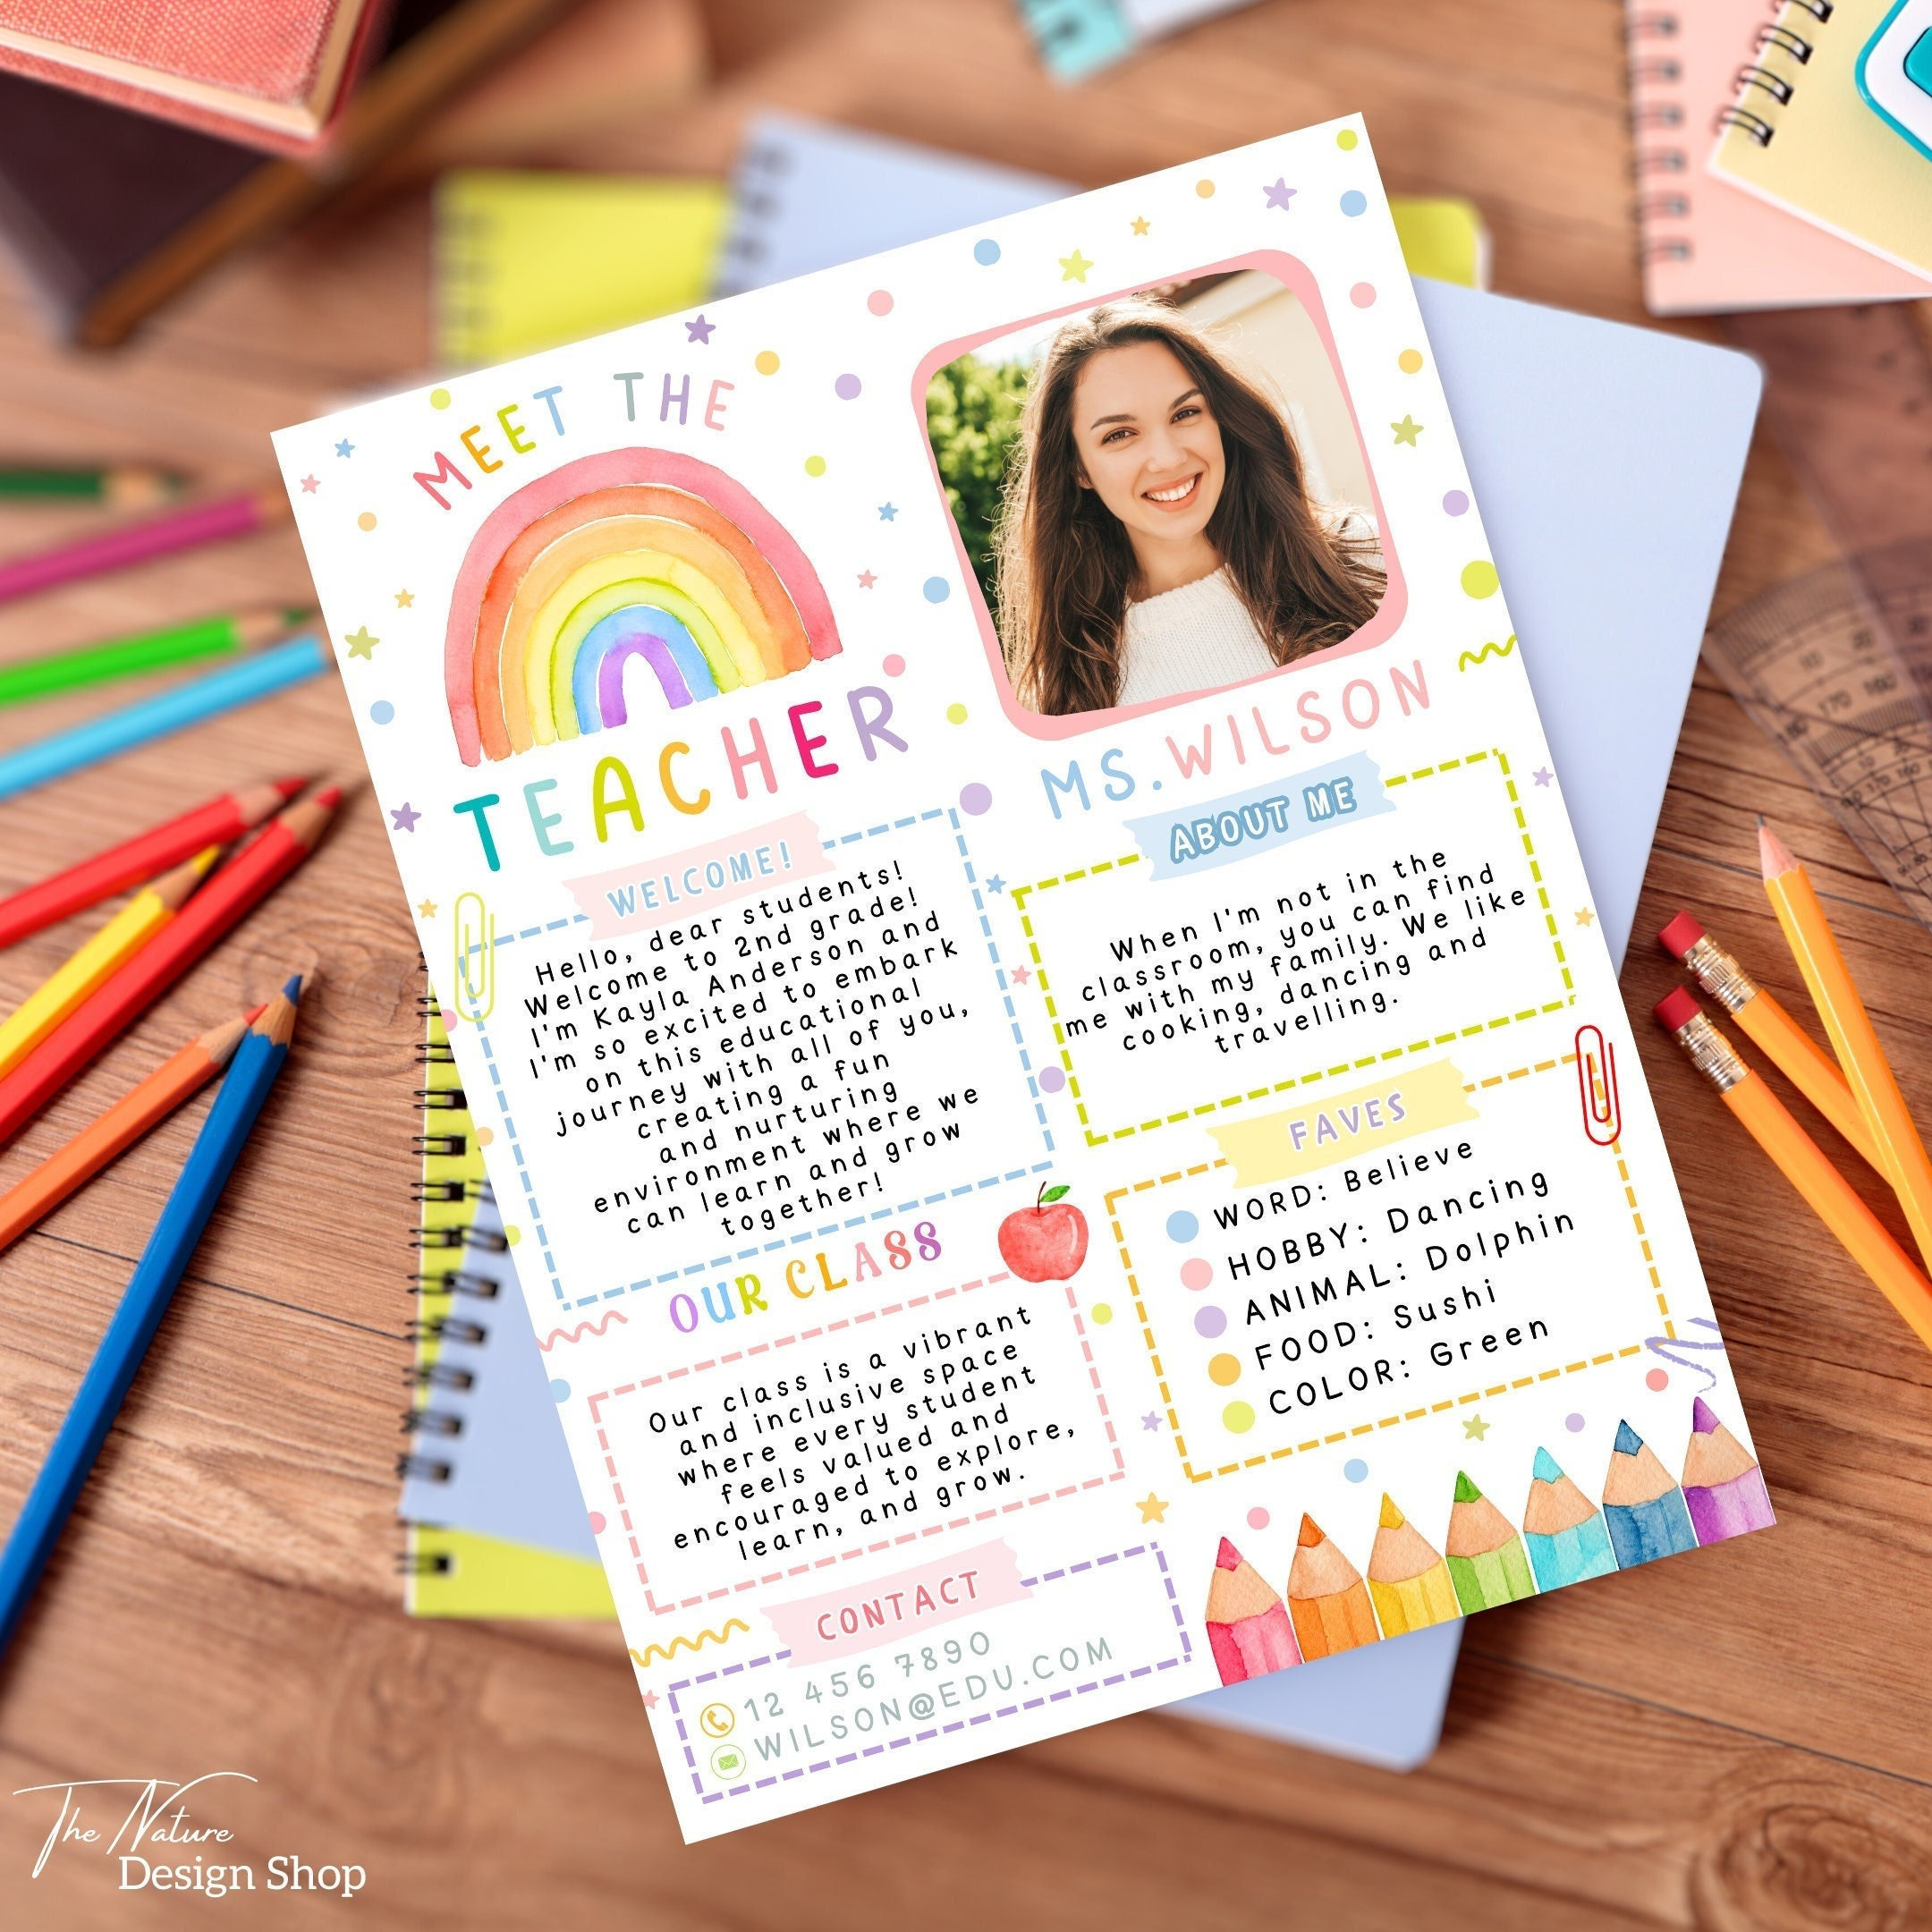 MEET THE
TEACHER
MS. WILSON
WELCOME!
Hello, dear students!
Welcome to 2nd grade!
I'm Kayla Anderson and
I'm so excited to embark
on this educational
journey with all of you,
creating a fun
and nurturing
environment where we
can learn and grow
together!
ABOUT ME
When I'm not in the
classroom, you can find
me with my family. We like
cooking, dancing and
travelling.
FAVES
WORD: Believe
HOBBY: Dancing
ANIMAL: Dolphin
FOOD: Sushi
COLOR: Green
OUR CLASS
Our class is a vibrant
and inclusive space
where every student
feels valued and
encouraged to explore,
learn, and grow.
CONTACT
12 456 7890
WILSON@EDU.COM
The Nature
Design Shop